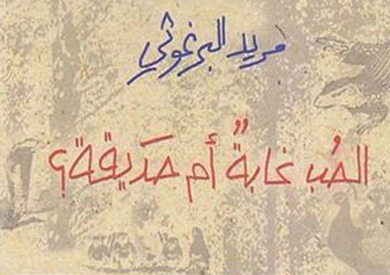 مريد البرغوثي
الحُب غابةٌ أم حديقة؟